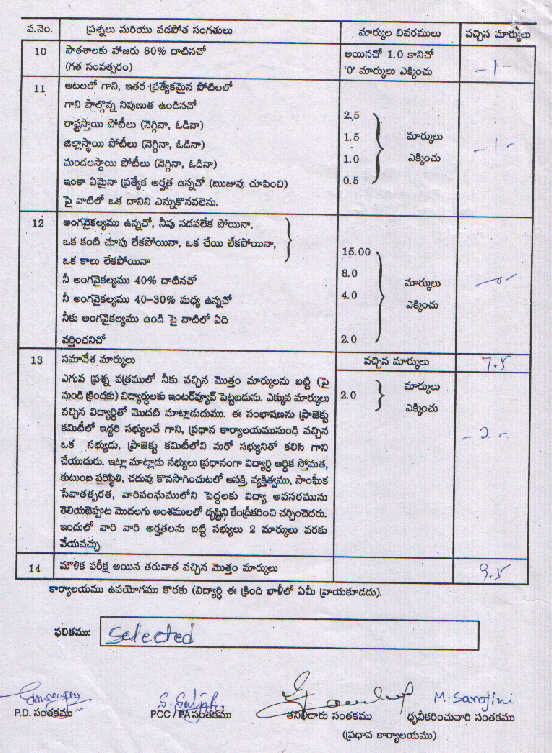 వ.నెం. ప్రశ్నలు మరియు వడపోత సంగతులు మార్కుల వివరములు వచ్చిన మార్కులు
10 పాఠశాలకు హాజరు 80% దాటినచో అయినచో 1.0 కానిచో -1-
(గత సంవత్సరం) '0' మార్కులు ఎక్కించు
11 ఆటలలో గాని, ఇతర ప్రత్యేకమైన పోటీలలో
గాని పాల్గొన్న నిపుణుత ఉండినచో
రాష్ట్రస్థాయి పోటీలు (నెగ్గినా, ఓడినా) 2.5 మార్కులు
జిల్లాస్థాయి పోటీలు (నెగ్గినా, ఓడినా) 1.5 -1-
మండలస్థాయి పోటీలు (నెగ్గినా, ఓడినా) 1.0 ఎక్కించు
ఇంకా ఏమైనా ప్రత్యేక అర్హత ఉన్నచో (ఋజువు చూపించి) 0.5
పై వాటిలో ఒక దానిని ఎన్నుకొనవలెను.
12 అంగవైకల్యము ఉన్నచో, నీవు నడవలేక పోయినా,
ఒక కంటి చూపు లేకపోయినా, ఒక చేయి లేకపోయినా,
ఒక కాలు లేకపోయినా 16.00
నీ అంగవైకల్యము 40% దాటినచో 8.0 మార్కులు -0-
నీ అంగవైకల్యము 40-30% మధ్య ఉన్నచో 4.0 ఎక్కించు
నీకు అంగవైకల్యము ఉండి పై వాటిలో ఏది
వర్తించనిచో 2.0
13 సమావేశ మార్కులు వచ్చిన మార్కులు 7.5
ఎగువ ప్రశ్న పత్రములో నీకు వచ్చిన మొత్తం మార్కులను బట్టి (పై 2.0 మార్కులు
నుండి క్రిందకు) విద్యార్థులకు ఇంటర్వ్యూవ్ పెట్టబడును. ఎక్కువ మార్కులు ఎక్కించు
వచ్చిన విద్యార్థితో మొదటి మాట్లాడుదుము. ఈ సంభాషణను ప్రాజెక్టు
కమిటీలో ఇద్దరి సభ్యులచే గాని, ప్రధాన కార్యాలయమునుండి వచ్చిన -2-
ఒక సభ్యుడు, ప్రాజెక్టు కమిటీలోని మరో సభ్యునితో కలిసి గాని
చేయుదురు. ఇట్లా మాట్లాడు సభ్యులు ప్రధానంగా విద్యార్థి ఆర్థిక స్తోమత,
కుటుంబ పరిస్థితి, చదువు కొనసాగించుటలో ఆసక్తి, వ్యక్తిత్వము, సాంఘిక
సేవాతత్పరత, వారివంశములోని పెద్దలకు విద్యా అవసరమును
తెలియజెప్పుట మొదలగు అంశములలో దృష్టిని కేంద్రీకరించి చర్చించెదరు.
ఇందులో వారి వారి అర్హతలను బట్టి సభ్యులు 2 మార్కులు వరకు
వేయవచ్చు
14 మౌళిక పరీక్ష అయిన తరువాత వచ్చిన మొత్తం మార్కులు 9.5
కార్యాలయము ఉపయోగము కొరకు (విద్యార్థి ఈ క్రింది ఖాళీలో ఏమీ వ్రాయకూడదు).
ఫలితము: Selected
M. Sarojini
P.D. సంతకము PCC / PA సంతకము తనిఖీదారు సంతకము ధృవీకరించువారి సంతకము
(ప్రధాన కార్యాలయము)